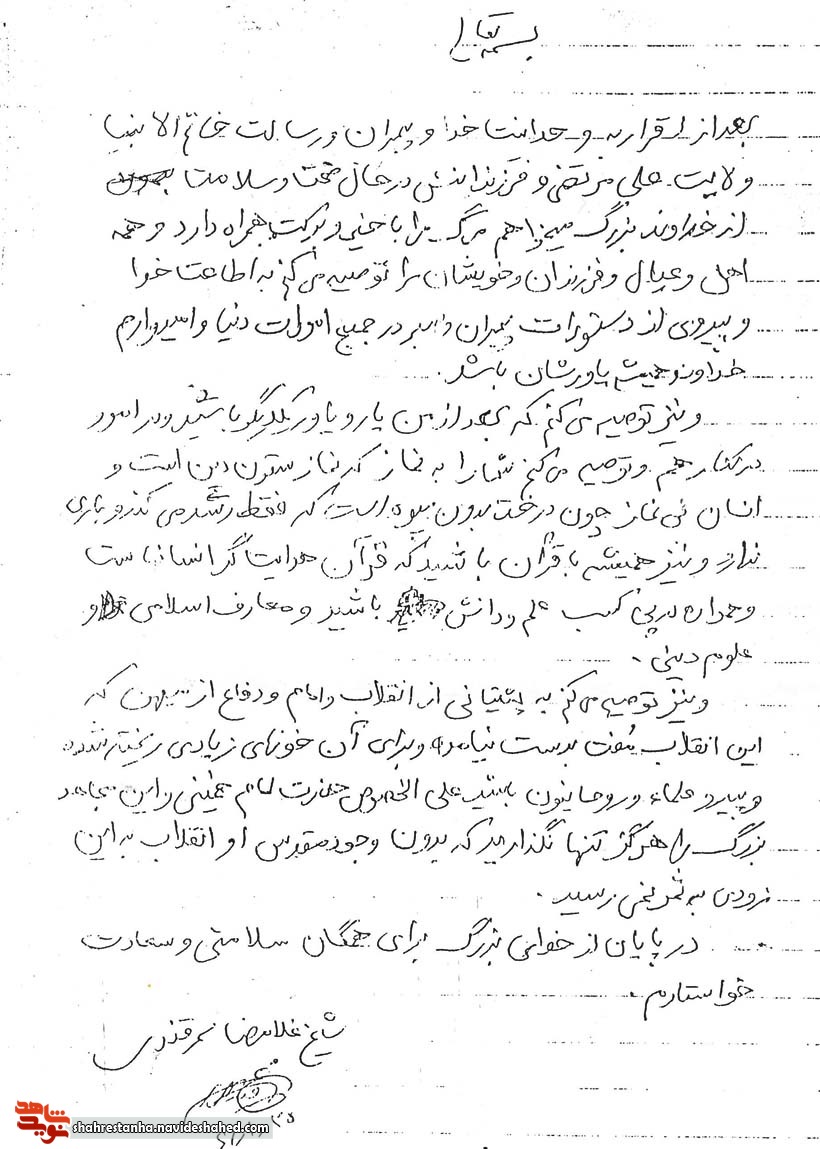 بسمه تعالی
بعد از اقرار به وحدانیت خدا و پیمبران و رسالت خاتم الانبیا
و لایت علی مرتضی و فرزندانش در حال صحت و سلامت
از خداوند بزرگ میخواهم مرگ مرا با خیر و برکت همراه دارد و همه
اهل و عیال و فرزندان و خویشان را توصیه می کنم به اطاعت خدا
و پیروی از دستورات پیمبران در جمیع امورات دنیا و امیدوارم
خداوند همیشه یاورشان باشد.
و نیز توصیه می کنم که بعد از من یار و یاور یکدیگر باشید و در امور
در کنار هم و توصیه می کنم شما را به نماز که نماز ستون دین است و
انسان بی نماز چون درخت بدون میوه است که فقط رشد می کند و باری
ندارد و نیز همیشه با قرآن باشید که قرآن هدایتگر انسانهاست
و همواره در پی کسب علم و دانش باشید و معارف اسلامی و
علوم دینی.
و نیز توصیه می کنم به پشتیبانی از انقلاب و امام و دفاع از میهن که
این انقلاب مفت بدست نیامده و برای آن خونهای زیادی ریخته شده
و پیرو علماء و روحانیون باشید علی الخصوص حضرت امام خمینی و این مجاهد
بزرگ را هرگز تنها نگذارید که بدون وجود مقدس او انقلاب به این
زودی به ثمر نمی رسید.
در پایان از خدای بزرگ برای همگان سلامتی و سعادت
خواستارم.
شیخ غلامرضا سمرقندی
نوید شاهد
shahrestanha.navideshahed.com